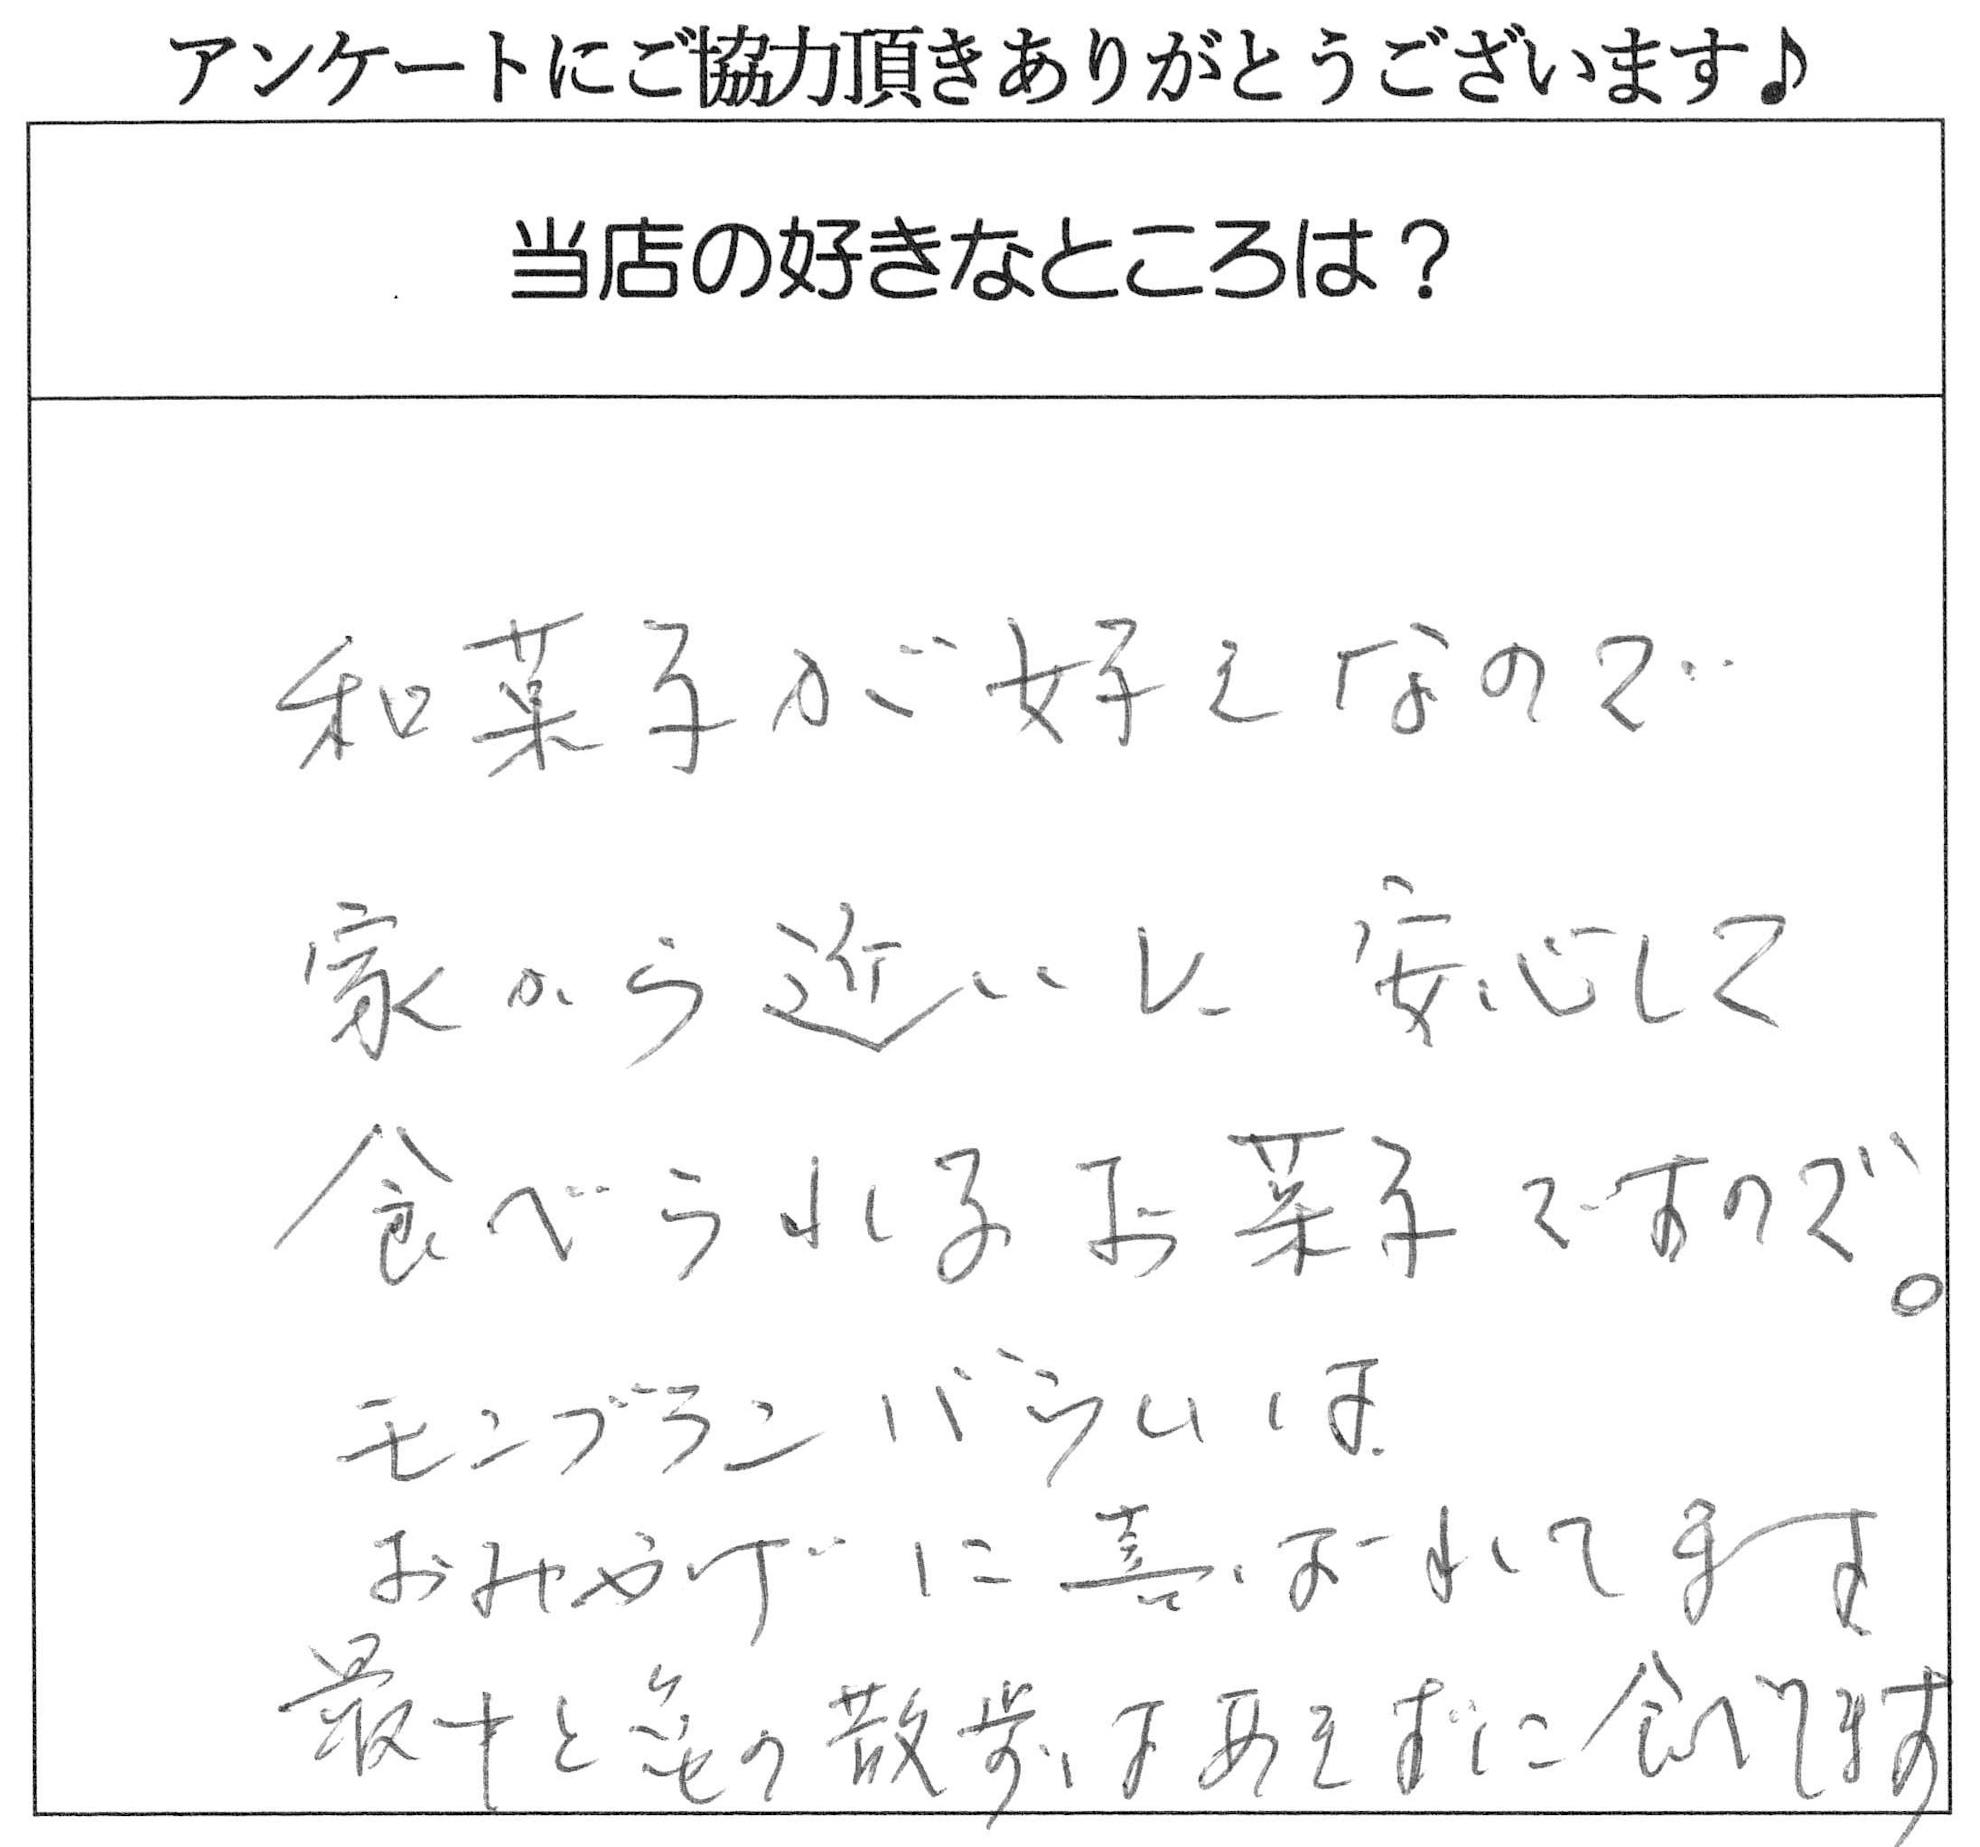 アンケートにご協力頂きありがとうございます♪
当店の好きなところは？
和菓子が好きなので
家から近いし 安心して
食べられるお菓子ですので。
モンブランバウムは
おみやげに喜ばれてます
最中と亀の散歩はあきずに食べてます